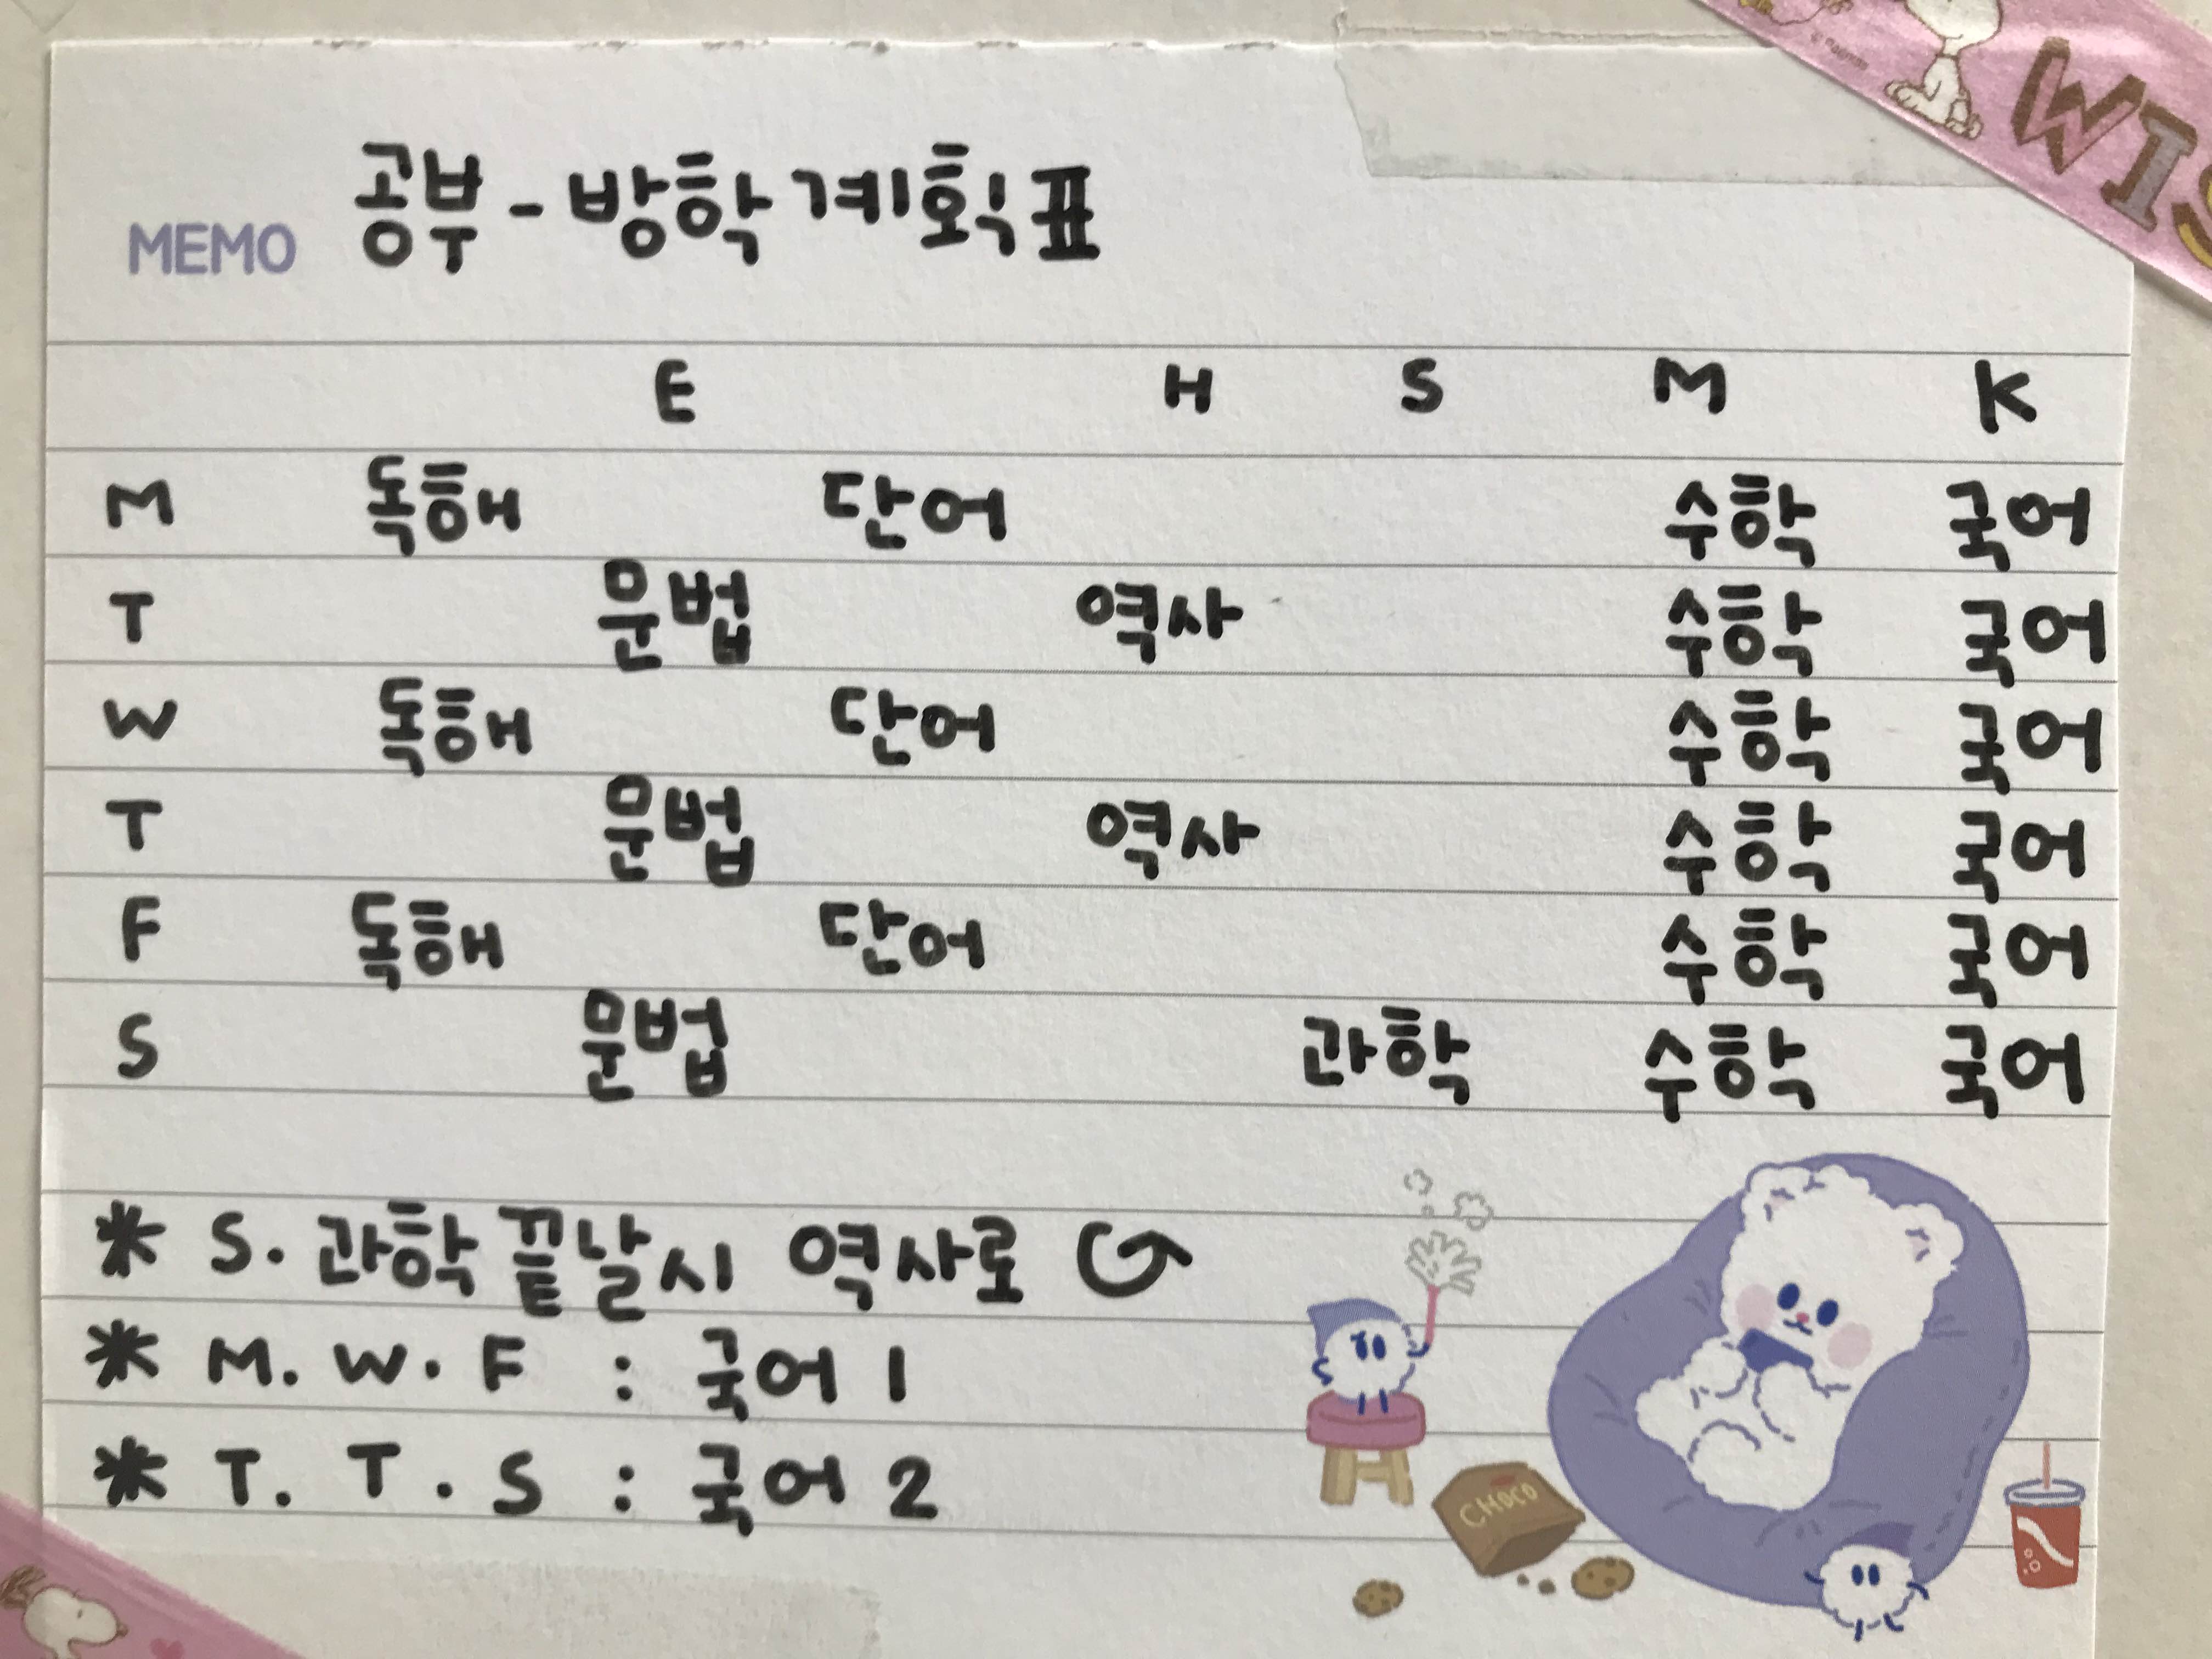 WIS
MEMO 공부 - 방학 계획표
E H S M K
M 독해 단어 수학 국어
T 문법 역사 수학 국어
W 독해 단어 수학 국어
T 문법 역사 수학 국어
F 독해 단어 수학 국어
S 문법 과학 수학 국어
* S. 과학 끝날시 역사로
* M. W. F : 국어 1
* T. T. S : 국어 2
CHOCO